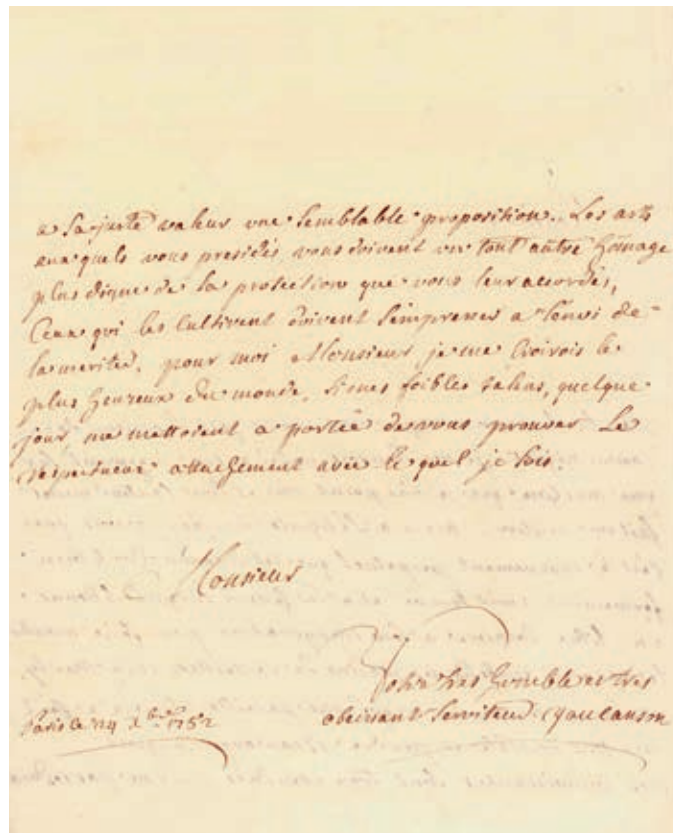 a sa juste valeur une semblable proposition. Les arts
auxquels vous presidés, vous doivent un tout autre homage
plus digne de la protection que vous leur accordés,
Ceux qui les Cultivent doivent s'empresser a l'envi de
la meriter. pour moi Monsieur, je me Croirois le
plus heureux du monde, si mes foibles talens, quelque
jour, me mettoient a portée de vous prouver Le
respectueux attachement avec le quel je suis.
Monsieur
Votre tres humble et tres
obeissant Serviteur
Paris le 24 1752